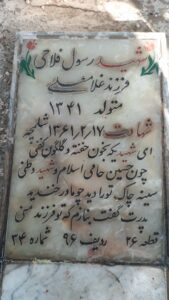 شهید رسول فلاحی
فرزند غلامعلی
متولد ۱۳۴۱
شهادت ۱۳۶۱/۲/۱۷ شلمچه
ای شهید که بخون خفته و گلگون کفنی
چون حسین حامی اسلام و شهید وطنی
سینه چاک تو را دید چو مادر خندید
پدرت گفت بنازم که تو فرزند منی
قطعه ۲۶ ردیف ۹۶ شماره ۳۴